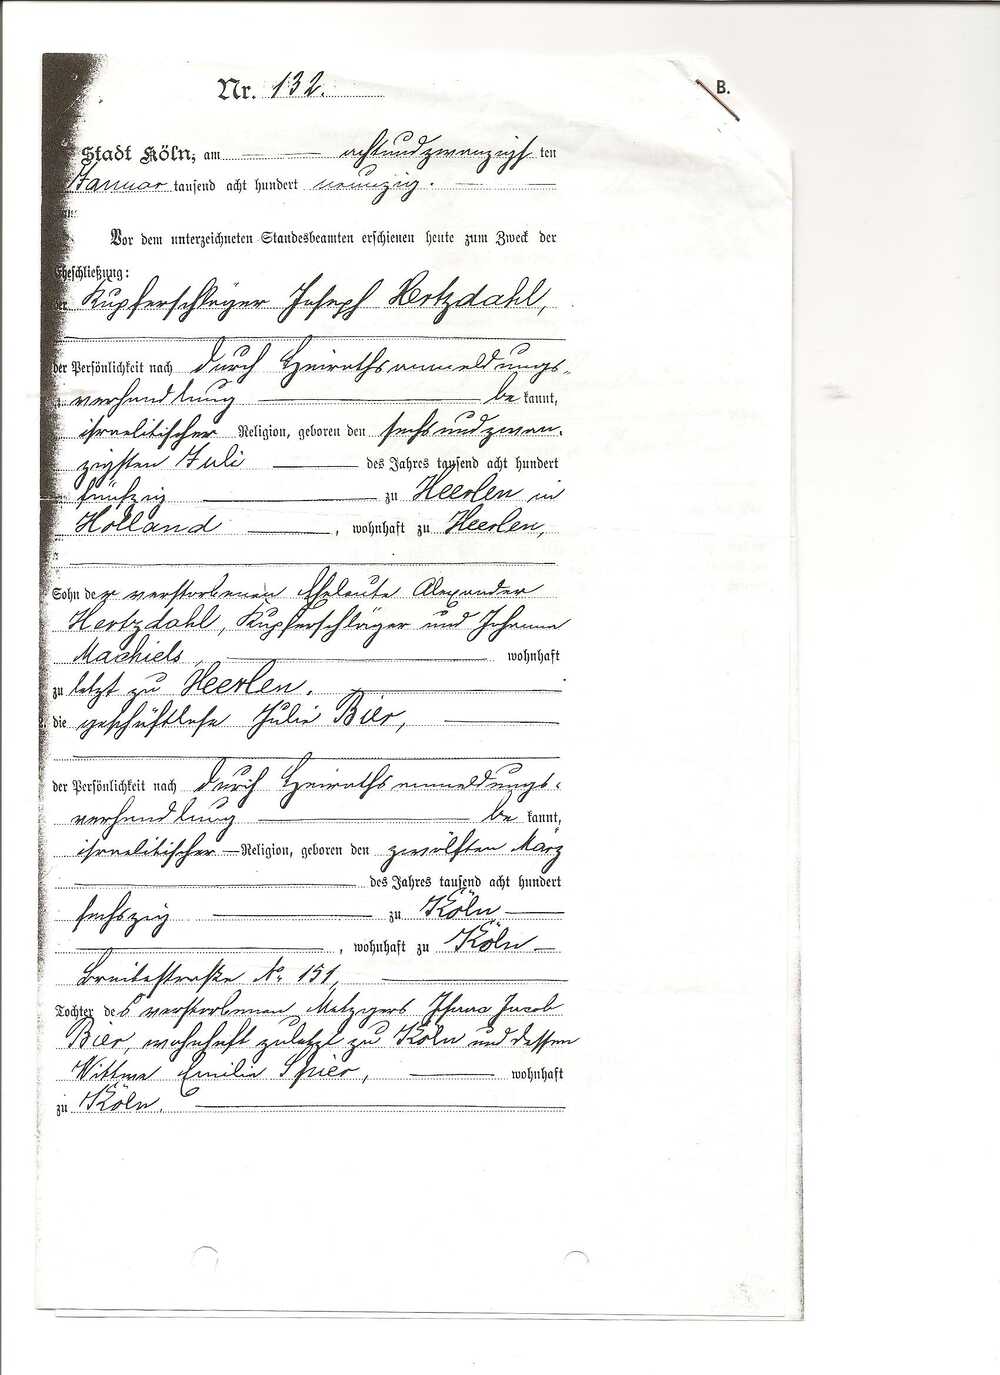 B.
Nr. 132.
Stadt Köln, am achtundzwanzigsten
Januar tausend acht hundert neunzig.
Vor dem unterzeichneten Standesbeamten erschienen heute zum Zweck der
Eheschließung:
der Kupferschläger Joseph Hertzdahl,
der Persönlichkeit nach durch Heirathsanmeldungs-
verhandlung be kannt,
israelitischer Religion, geboren den sechsundzwan-
zigsten Juli des Jahres tausend acht hundert
fünfzig zu Heerlen in
Holland, wohnhaft zu Heerlen,
Sohn der verstorbenen Eheleute Alexander
Hertzdahl, Kupferschläger und Johanna
Machiels, wohnhaft
zu letzt zu Heerlen.
2. die geschäftlose Julie Bier,
der Persönlichkeit nach durch Heirathsanmeldungs-
verhandlung be kannt,
israelitischer Religion, geboren den zwölften März
des Jahres tausend acht hundert
sechszig zu Köln
, wohnhaft zu Köln
Breitestraße No 151,
Tochter des verstorbenen Metzgers Isaac Jacob
Bier, wohnhaft zuletzt zu Köln und dessen
Wittwe Emilie Spier, wohnhaft
zu Köln.